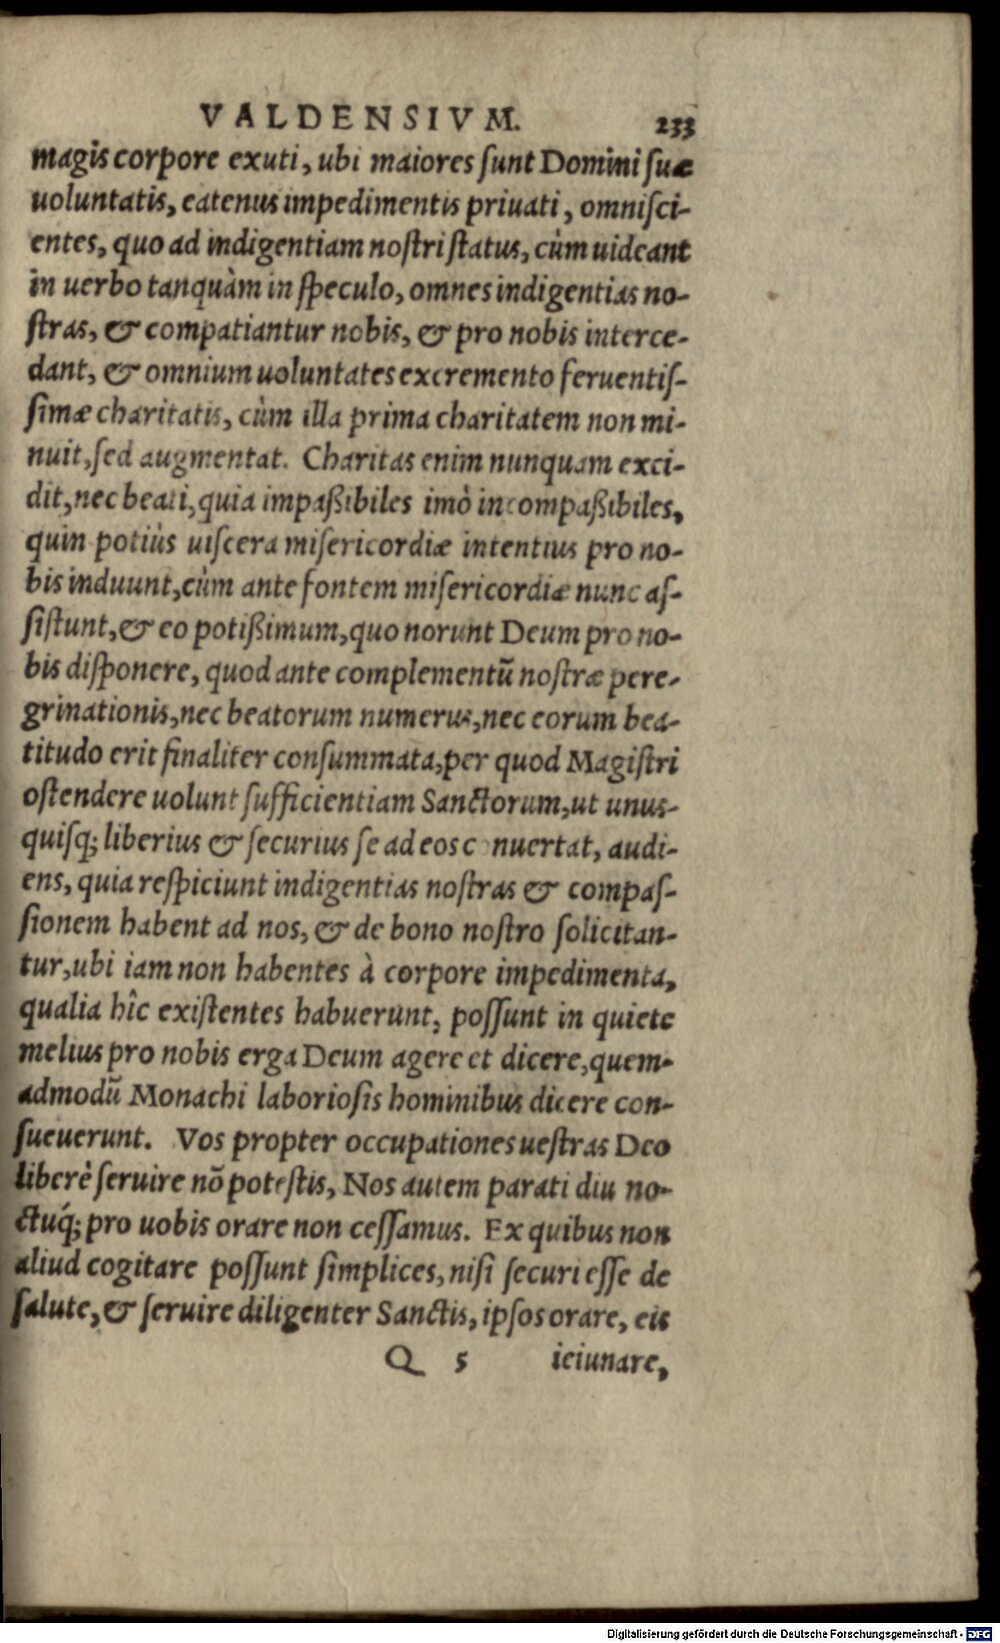 VALDENSIVM. 233
magis corpore exuti, ubi maiores ſunt Domini ſuæ
uoluntatis, eatenus impedimentis priuati, omniſci-
entes, quo ad indigentiam noſtri ſtatus, cùm uideant
in uerbo tanquàm in ſpeculo, omnes indigentias no-
ſtras, & compatiantur nobis, & pro nobis interce-
dant, & omnium uoluntates excremento feruentiſ-
ſimæ charitatis, cùm illa prima charitatem non mi-
nuit, ſed augmentat. Charitas enim nunquam exci-
dit, nec beati, quia impaßibiles imò incompaßibiles,
quin potiùs uiſcera miſericordiæ intentius pro no-
bis induunt, cùm ante fontem miſericordiæ nunc aſ-
ſiſtunt, & eo potißimum, quo norunt Deum pro no-
bis diſponere, quod ante complementũ noſtræ pere-
grinationis, nec beatorum numerus, nec eorum bea-
titudo erit finaliter conſummata, per quod Magiſtri
oſtendere uolunt ſufficientiam Sanctorum, ut unuſ-
quiſq; liberius & ſecurius ſe ad eos c nuertat, audi-
ens, quia reſpiciunt indigentias noſtras & compaſ-
ſionem habent ad nos, & de bono noſtro ſolicitan-
tur, ubi iam non habentes à corpore impedimenta,
qualia hîc exiſtentes habuerunt, poſſunt in quiete
melius pro nobis erga Deum agere et dicere, quem-
admodũ Monachi laborioſis hominibus dicere con-
ſueuerunt. Vos propter occupationes ueſtras Deo
liberè ſeruire nõ poteſtis, Nos autem parati diu no-
ctuq́; pro uobis orare non ceſſamus. Ex quibus non
aliud cogitare poſſunt ſimplices, niſi ſecuri eſſe de
ſalute, & ſeruire diligenter Sanctis, ipſos orare, eis
Q 5 ieiunare,
Digitalisierung gefördert durch die Deutsche Forschungsgemeinschaft - DFG